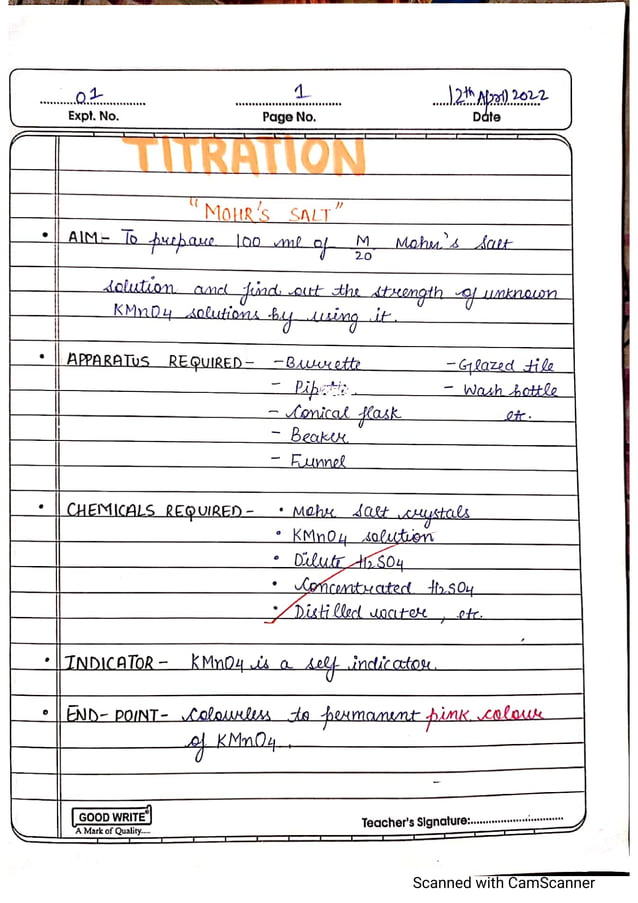 01 1 12th April 2022
Expt. No. Page No. Date
TITRATION
"MOHR'S SALT"
• AIM- To prepare 100 ml of M/20 Mohr's salt
solution and find out the strength of unknown
KMnO4 solutions by using it.
• APPARATUS REQUIRED- -Burrette -Glazed tile
- Pipette. - Wash bottle
- Conical flask etc.
- Beaker
- Funnel
• CHEMICALS REQUIRED- • Mohr salt crystals
• KMnO4 solution
• Dilute H2SO4
• Concentrated H2SO4
• Distilled water, etc.
• INDICATOR- KMnO4 is a self indicator.
• END-POINT- Colourless to permanent pink colour
of KMnO4.
GOOD WRITE
A Mark of Quality.....
Teacher's Signature:
Scanned with CamScanner